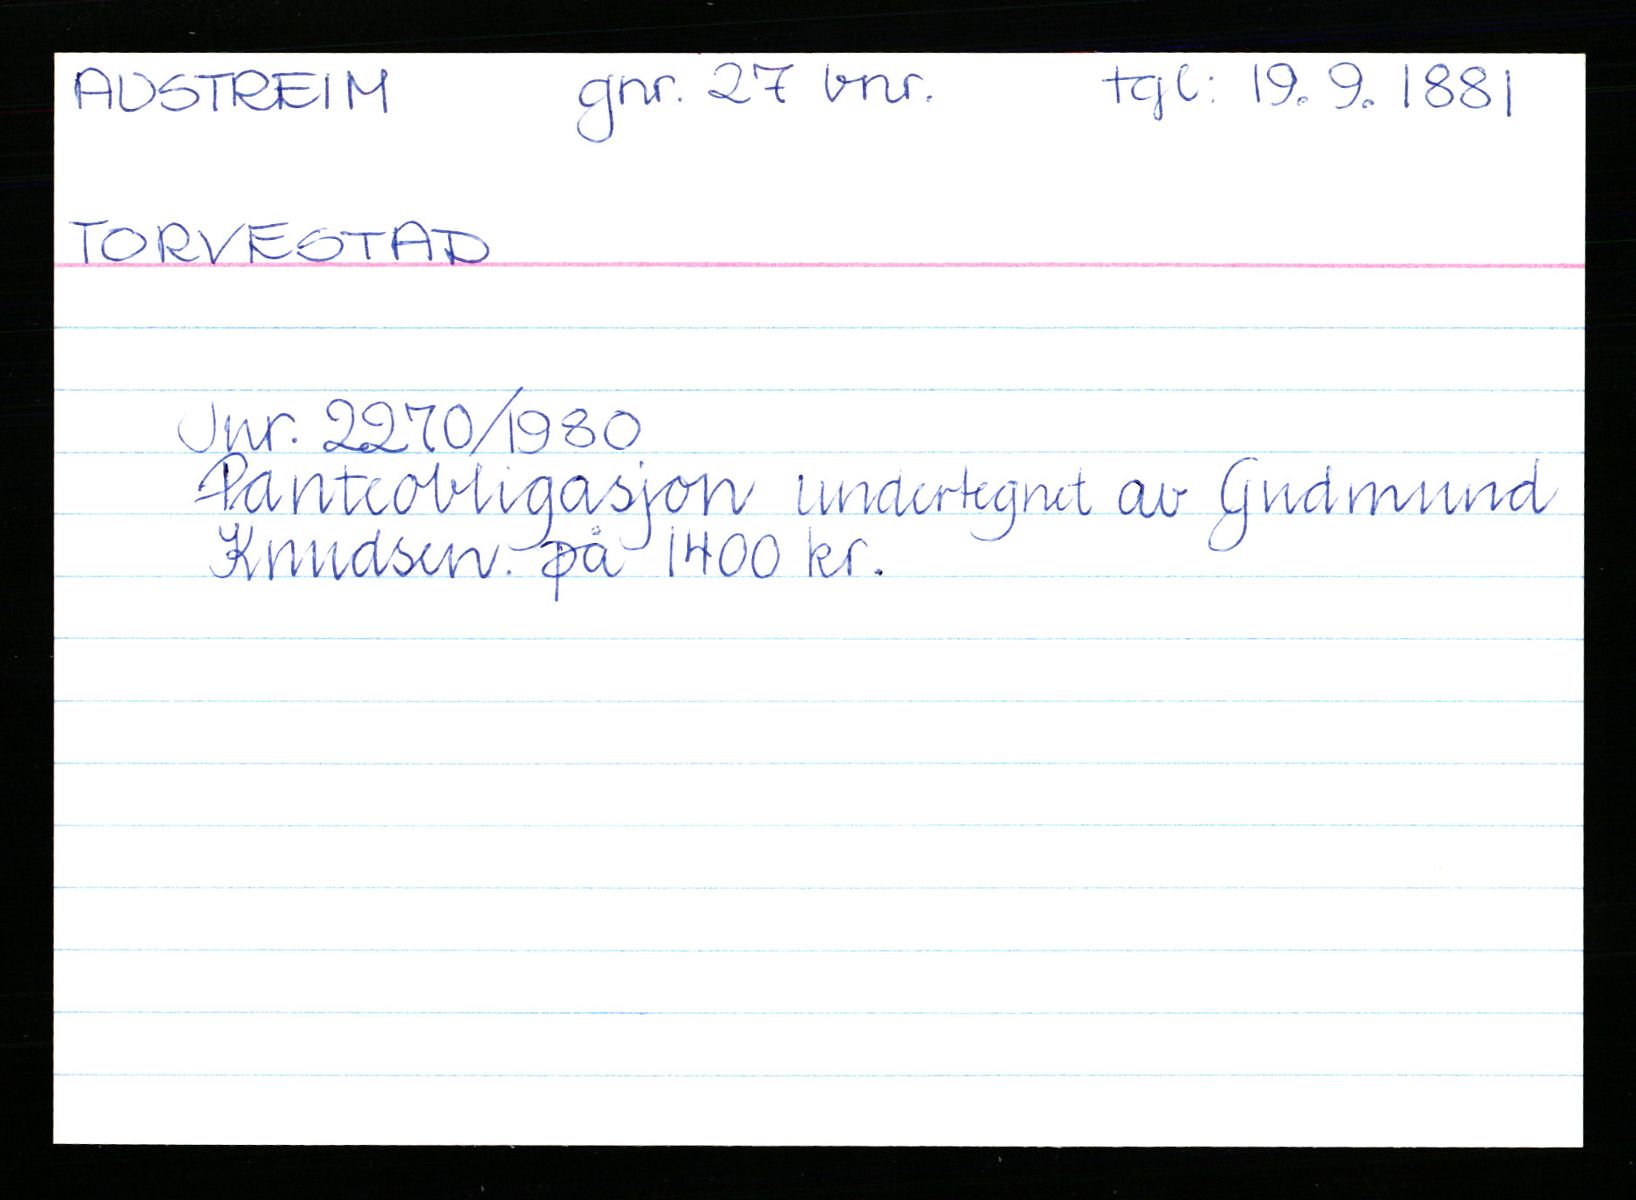 AUSTREIM gnr. 27 bnr. tgl: 19. 9. 1881
TORVESTAD
Jnr. 2270/1980
Panteobligasjon undertegnet av Gudmund
Knudsen. på 1400 kr.